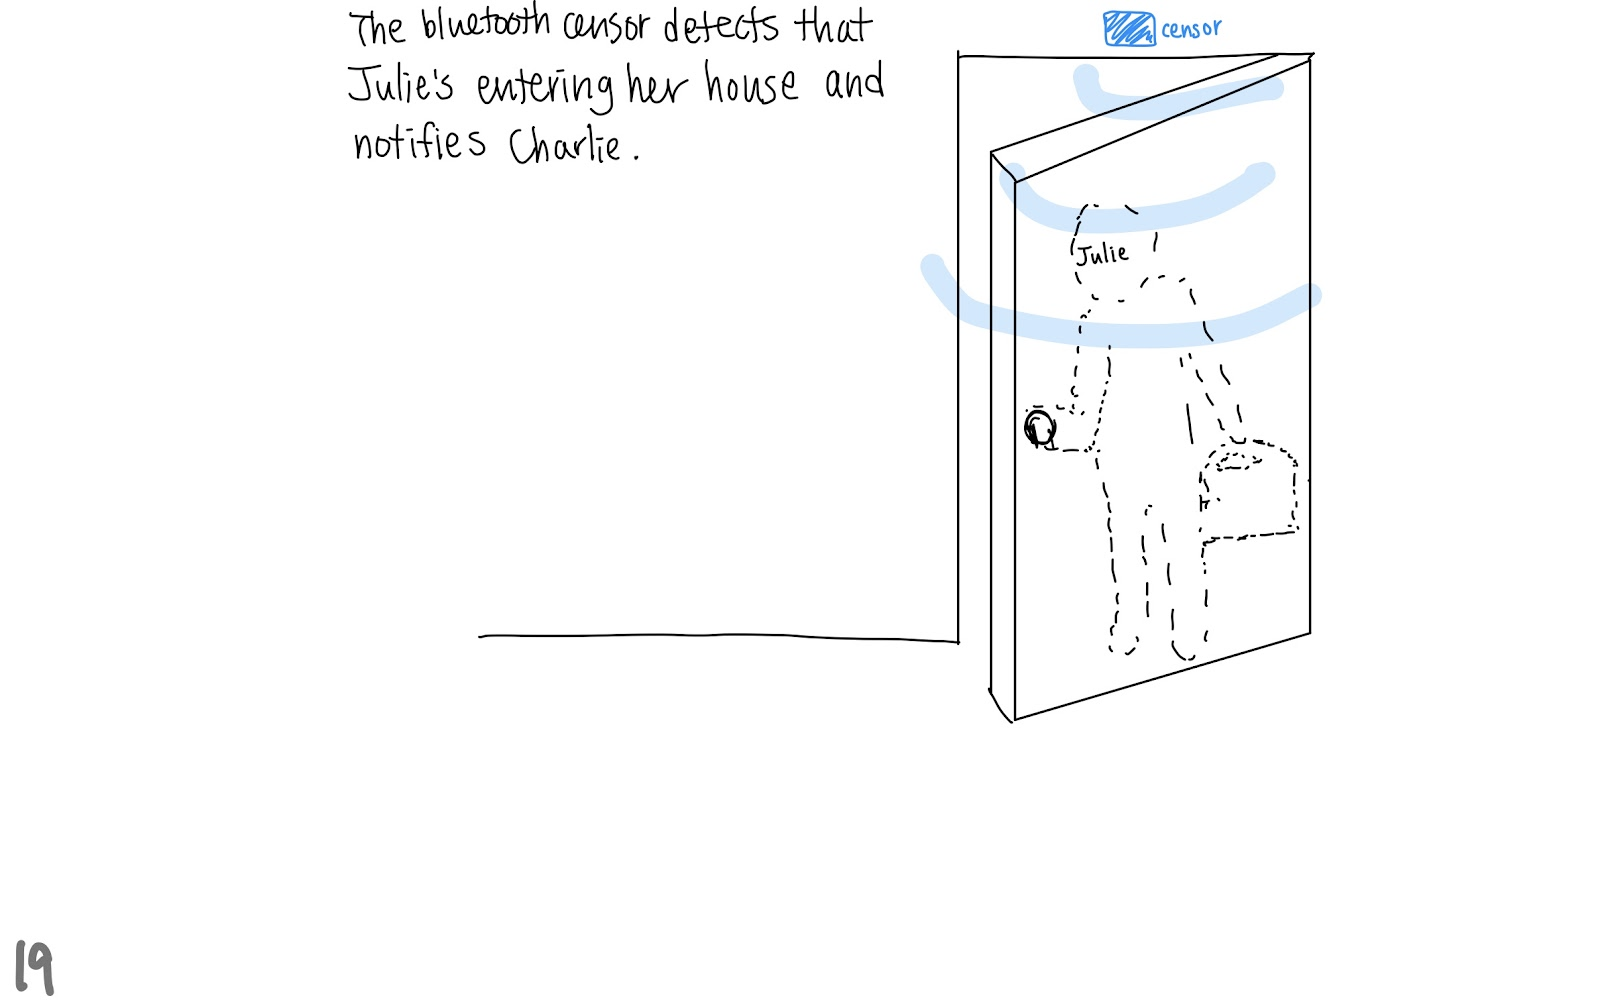 The bluetooth censor detects that
Julie's entering her house and
notifies Charlie.
censor
Julie
19